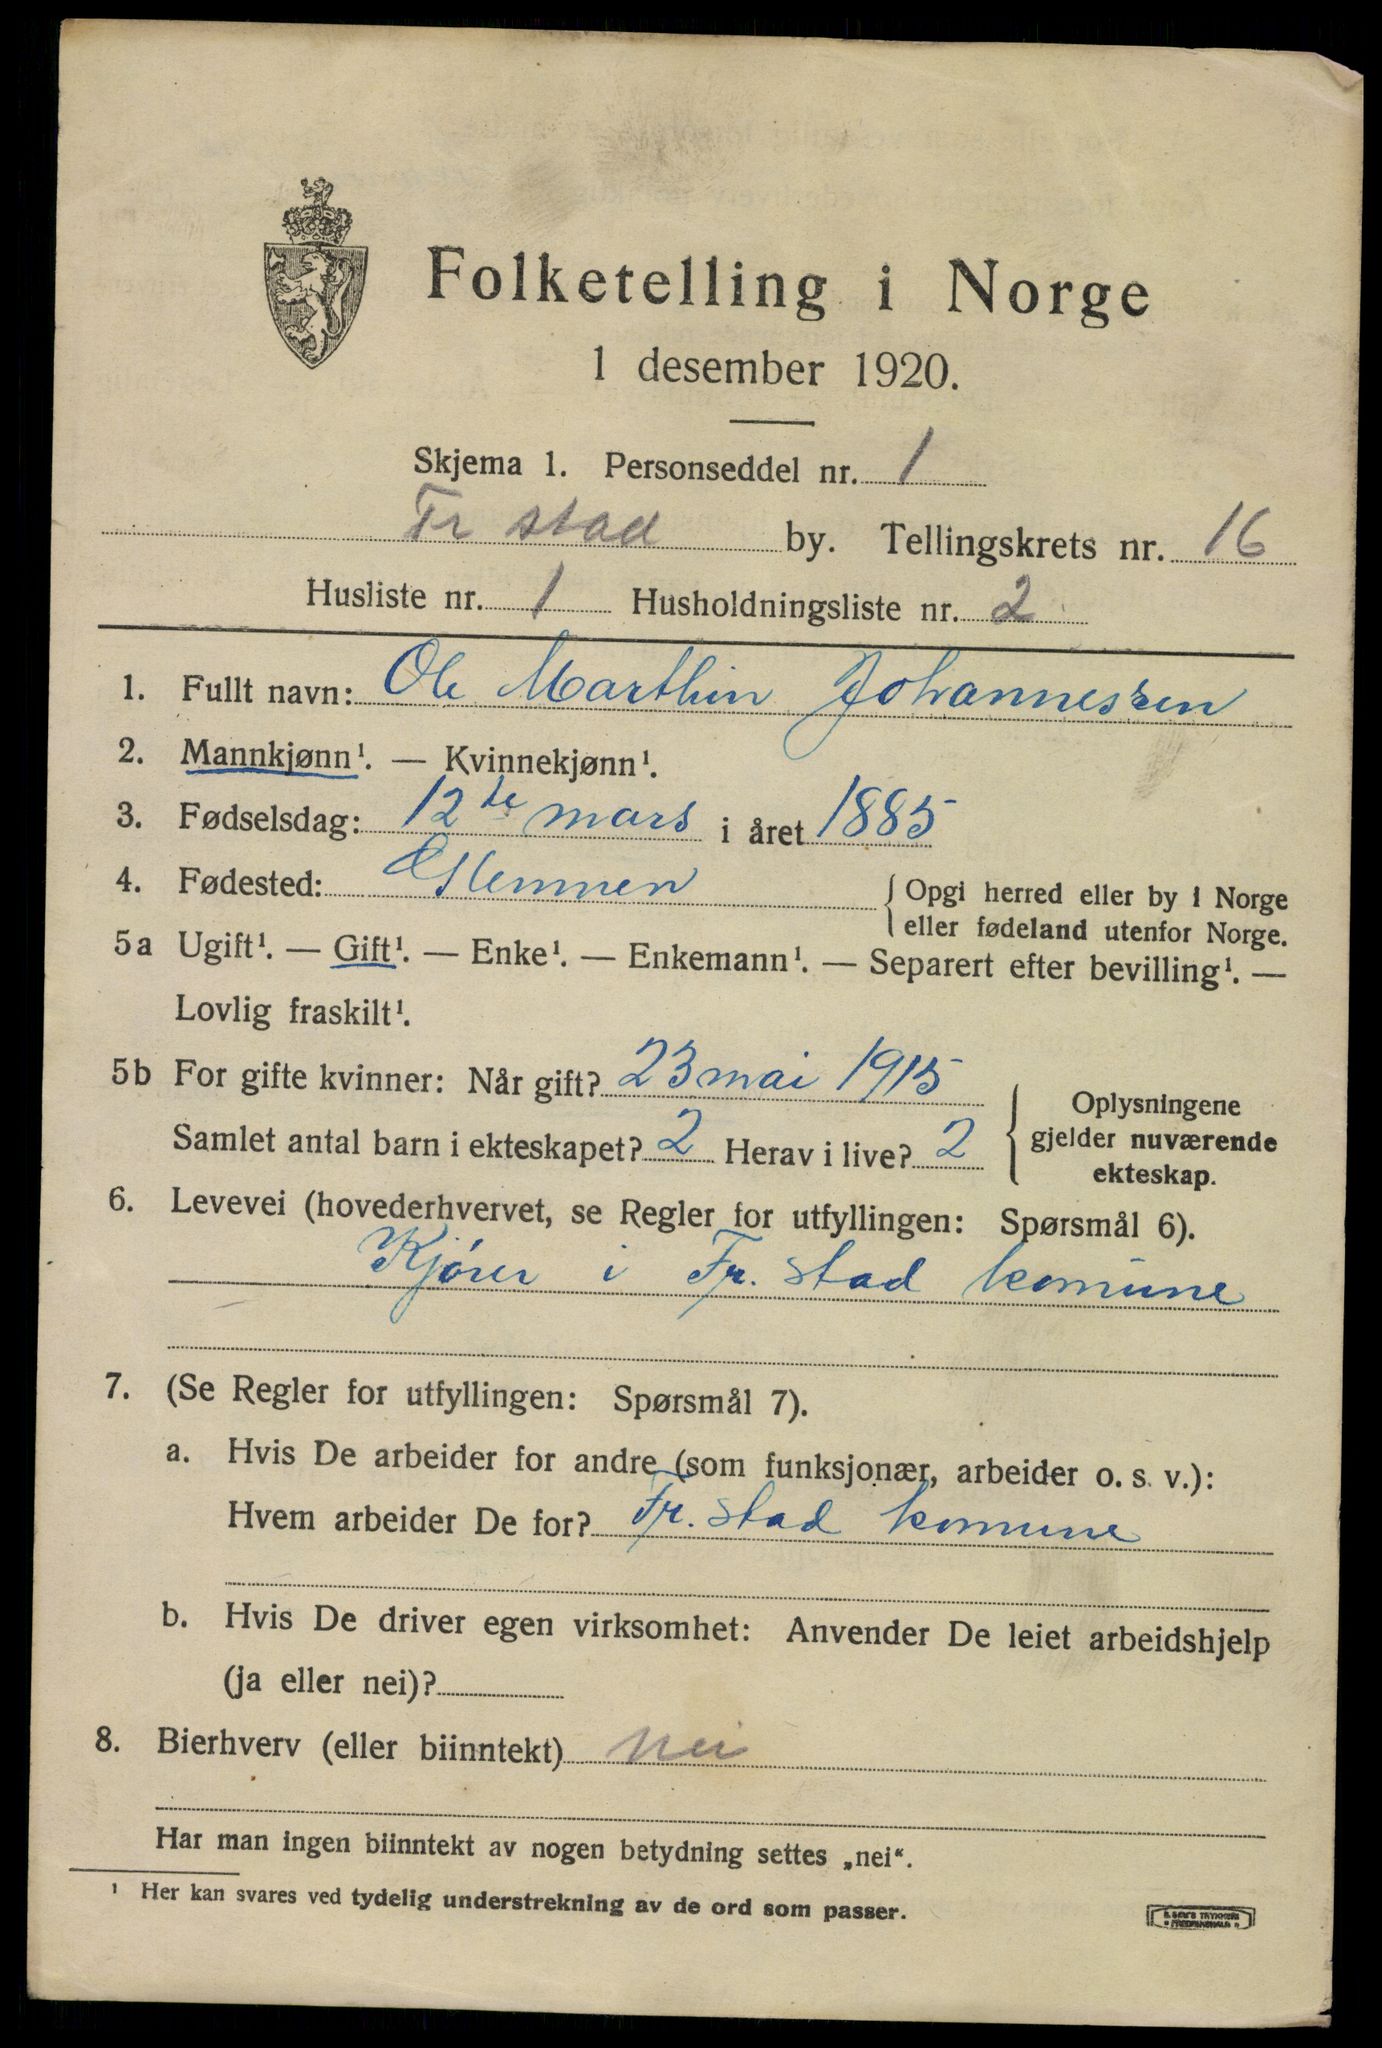 Folketelling i Norge
1 desember 1920.
Skjema 1. Personseddel nr. 1
Fr stad by. Tellingskrets nr. 16
Husliste nr. 1 Husholdningsliste nr. 2
1. Fullt navn: Ole Marthin Johannessen
2. Mannkjønn¹. — Kvinnekjønn¹.
3. Fødselsdag: 12te mars i året 1885
4. Fødested: Glemmen { Opgi herred eller by i Norge
eller fødeland utenfor Norge.
5a Ugift¹. — Gift¹. — Enke¹. — Enkemann¹. — Separert efter bevilling¹. —
Lovlig fraskilt¹.
5b For gifte kvinner: Når gift? 23 mai 1915
Samlet antal barn i ekteskapet? 2 Herav i live? 2
{ Oplysningene
gjelder nuværende
ekteskap.
6. Levevei (hovederhvervet, se Regler for utfyllingen: Spørsmål 6).
Kjører i Fr. stad komune
7. (Se Regler for utfyllingen: Spørsmål 7).
a. Hvis De arbeider for andre (som funksjonær, arbeider o. s. v.):
Hvem arbeider De for? Fr. stad komune
b. Hvis De driver egen virksomhet: Anvender De leiet arbeidshjelp
(ja eller nei)?
8. Bierhverv (eller biinntekt) Nei
Har man ingen biinntekt av nogen betydning settes „nei“.
¹ Her kan svares ved tydelig understrekning av de ord som passer.